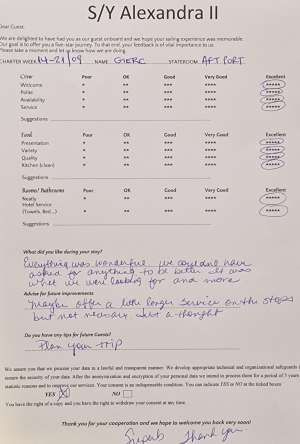 S/Y Alexandra II
Dear Guest
We are delighted to have had you as our guest onboard and we hope your sailing experience was memorable.
Our goal is to offer you a five-star journey. To that end, your feedback is of vital importance to us.
Please take a moment and let us know how we are doing.
CHARTER WEEK 14-21/09 NAME GIERC STATEROOM AFT PORT
Crew Poor OK Good Very Good Excellent
Welcome * ** *** **** *****
Polite * ** *** **** *****
Availability * ** *** **** *****
Service * ** *** **** *****
Suggestions
Food Poor OK Good Very Good Excellent
Presentation * ** *** **** *****
Variety * ** *** **** *****
Quality * ** *** **** *****
Kitchen (clean) * ** *** **** *****
Suggestions
Rooms/ Bathrooms Poor OK Good Very Good Excellent
Neatly * ** *** **** *****
Hotel Service
(Towels, Bed...) * ** *** **** *****
Suggestions
What did you like during your stay?
Everything was wonderful we couldn't have
asked for anything to be better it was
what we were looking for and more
Advise for future improvements
Maybe offer a little longer service on the stops
but not necessary just a thought
Do you have any tips for future Guests?
Plan your trip
We assure you that we process your data in a lawful and transparent manner. We develop appropriate technical and organizational safeguards
ensure the security of your data. After the anonymization and encryption of your personal data we intend to process them for a period of 3 years
statistic reasons and to improve our services. Your consent is an indispensable condition. You can indicate YES or NO at the ticked boxes
YES X NO
You have the right of a copy and you have the right to withdraw your consent at any time.
Thank you for your cooperation and we hope to welcome you back very soon!
Superb Thank you